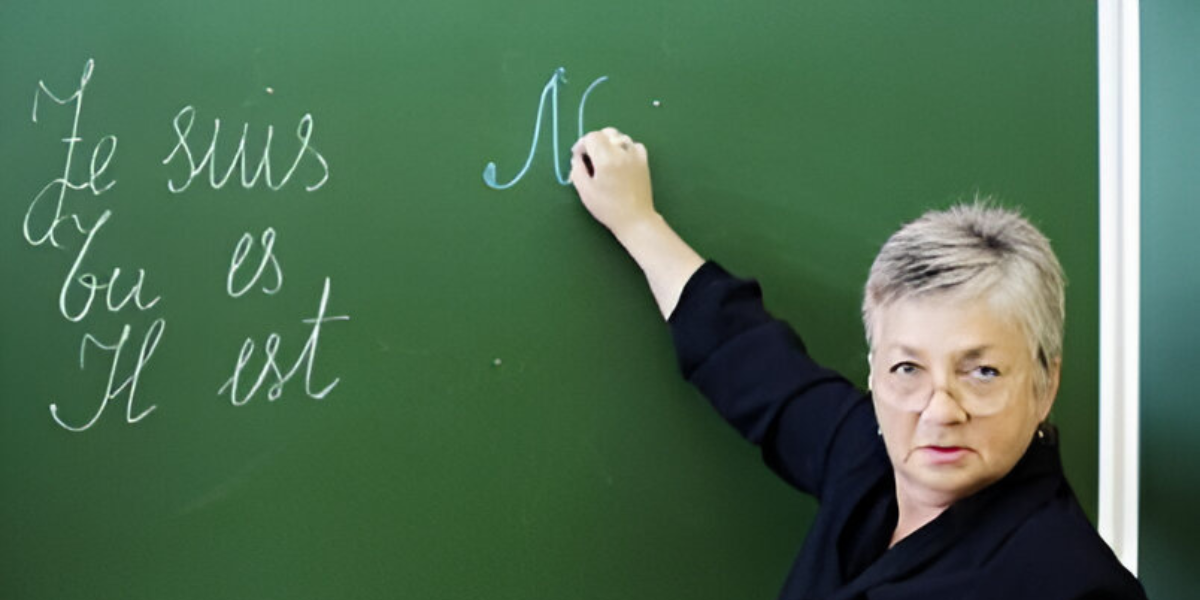 Je suis
Tu es
Il est
N